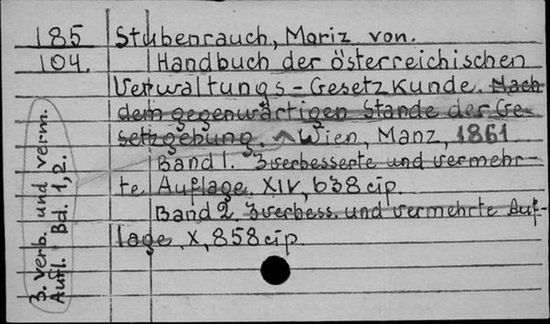 185 Stubenrauch, Moriz von.
104. Handbuch der österreichischen
Verwaltungs-Gesetzkunde. Nach
dem gegenwärtigen Stande der Ge-
setzgebung. Wien, Manz, 1861
Band 1. 3 verbesserte und vermehr-
te Auflage. XIV, 638 cip.
Band 2. 3 verbess. und vermehrte Auf-
lage, X, 858 cip
3. verb. und verm.
Aufl. Bd. 1, 2.